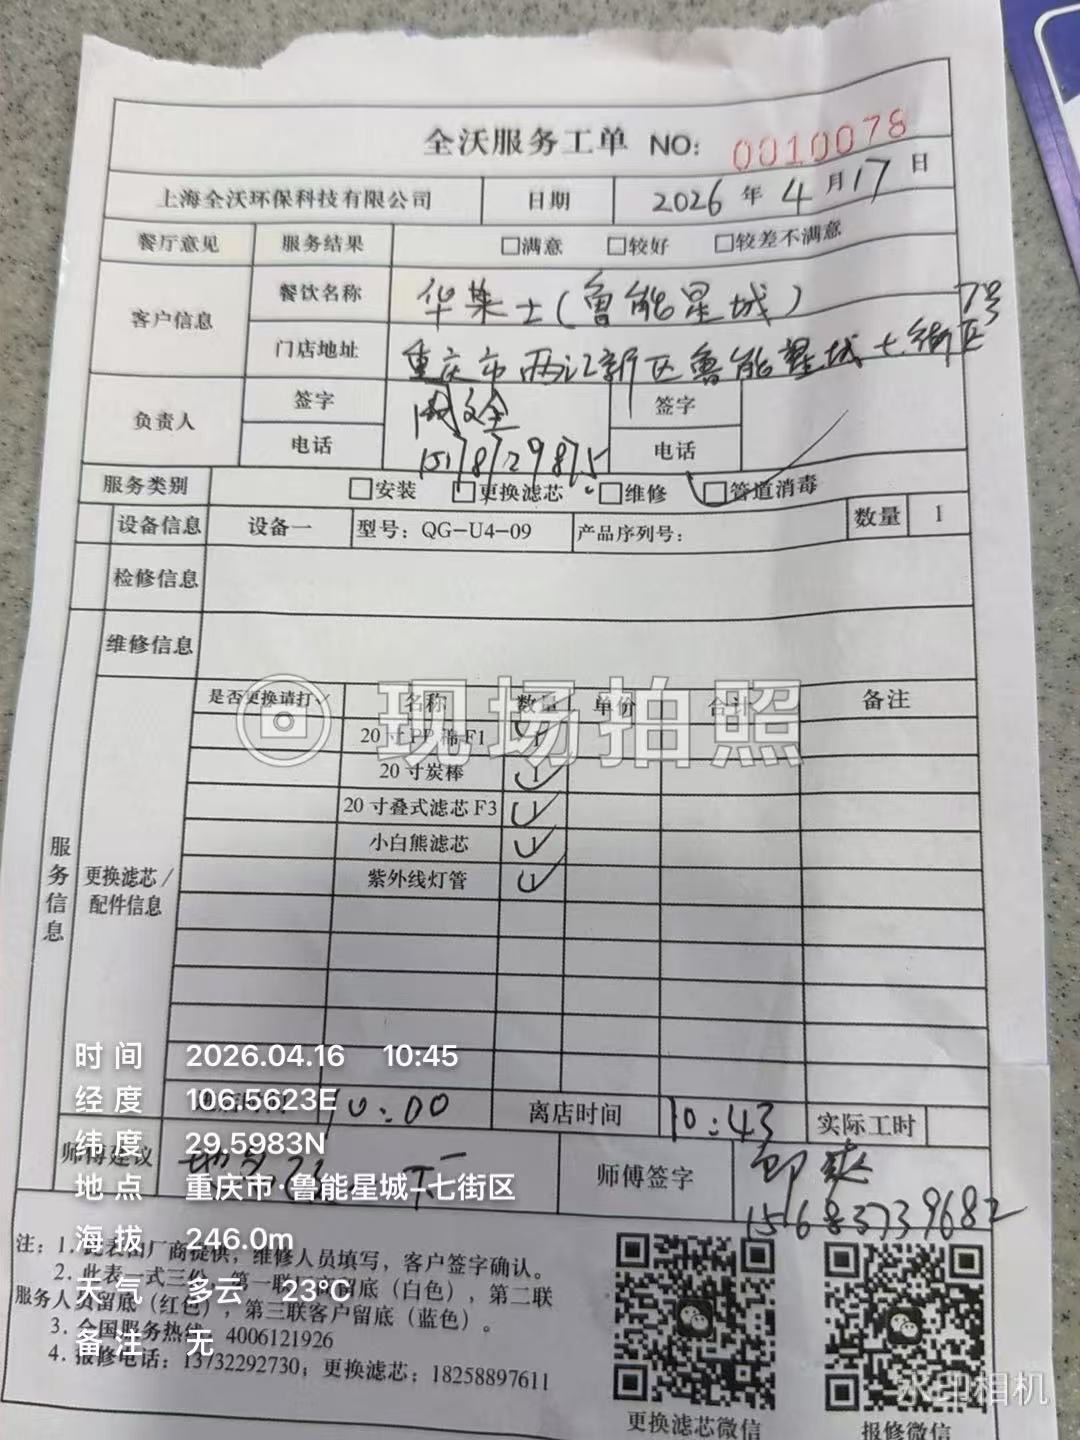 全沃服务工单 NO: 0010078
上海全沃环保科技有限公司 日期 2026 年 4 月 17 日
餐厅意见 服务结果 □满意 □较好 □较差不满意
客户信息 餐饮名称 华莱士(鲁能星城)
门店地址 重庆市两江新区鲁能星城七街区7号
负责人 签字 签字
电话 15178729875 电话
服务类别 □安装 □更换滤芯 □维修 □管道消毒
设备信息 设备一 型号: QG-U4-09 产品序列号: 数量 1
检修信息
维修信息
服务信息
更换滤芯/配件信息
是否更换请打√ 名称 数量 单价 合计 备注
20寸PP棉F1 1
20寸炭棒 1
20寸叠式滤芯F3 1
小白熊滤芯 1
紫外线灯管 1
10:00 离店时间 10:43 实际工时
师傅建议 师傅签字
15683739682
注: 1. 此表由厂商提供, 维修人员填写, 客户签字确认。
2. 此表一式三份, 第一联厂商留底(白色), 第二联
服务人员留底(红色), 第三联客户留底(蓝色)。
3. 全国服务热线: 4006121926
4. 报修电话: 13732292730; 更换滤芯: 18258897611
更换滤芯微信 报修微信
现场拍照
时间 2026.04.16 10:45
经度 106.5623E
纬度 29.5983N
地点 重庆市·鲁能星城-七街区
海拔 246.0m
天气 多云 23°C
备注 无
水印相机